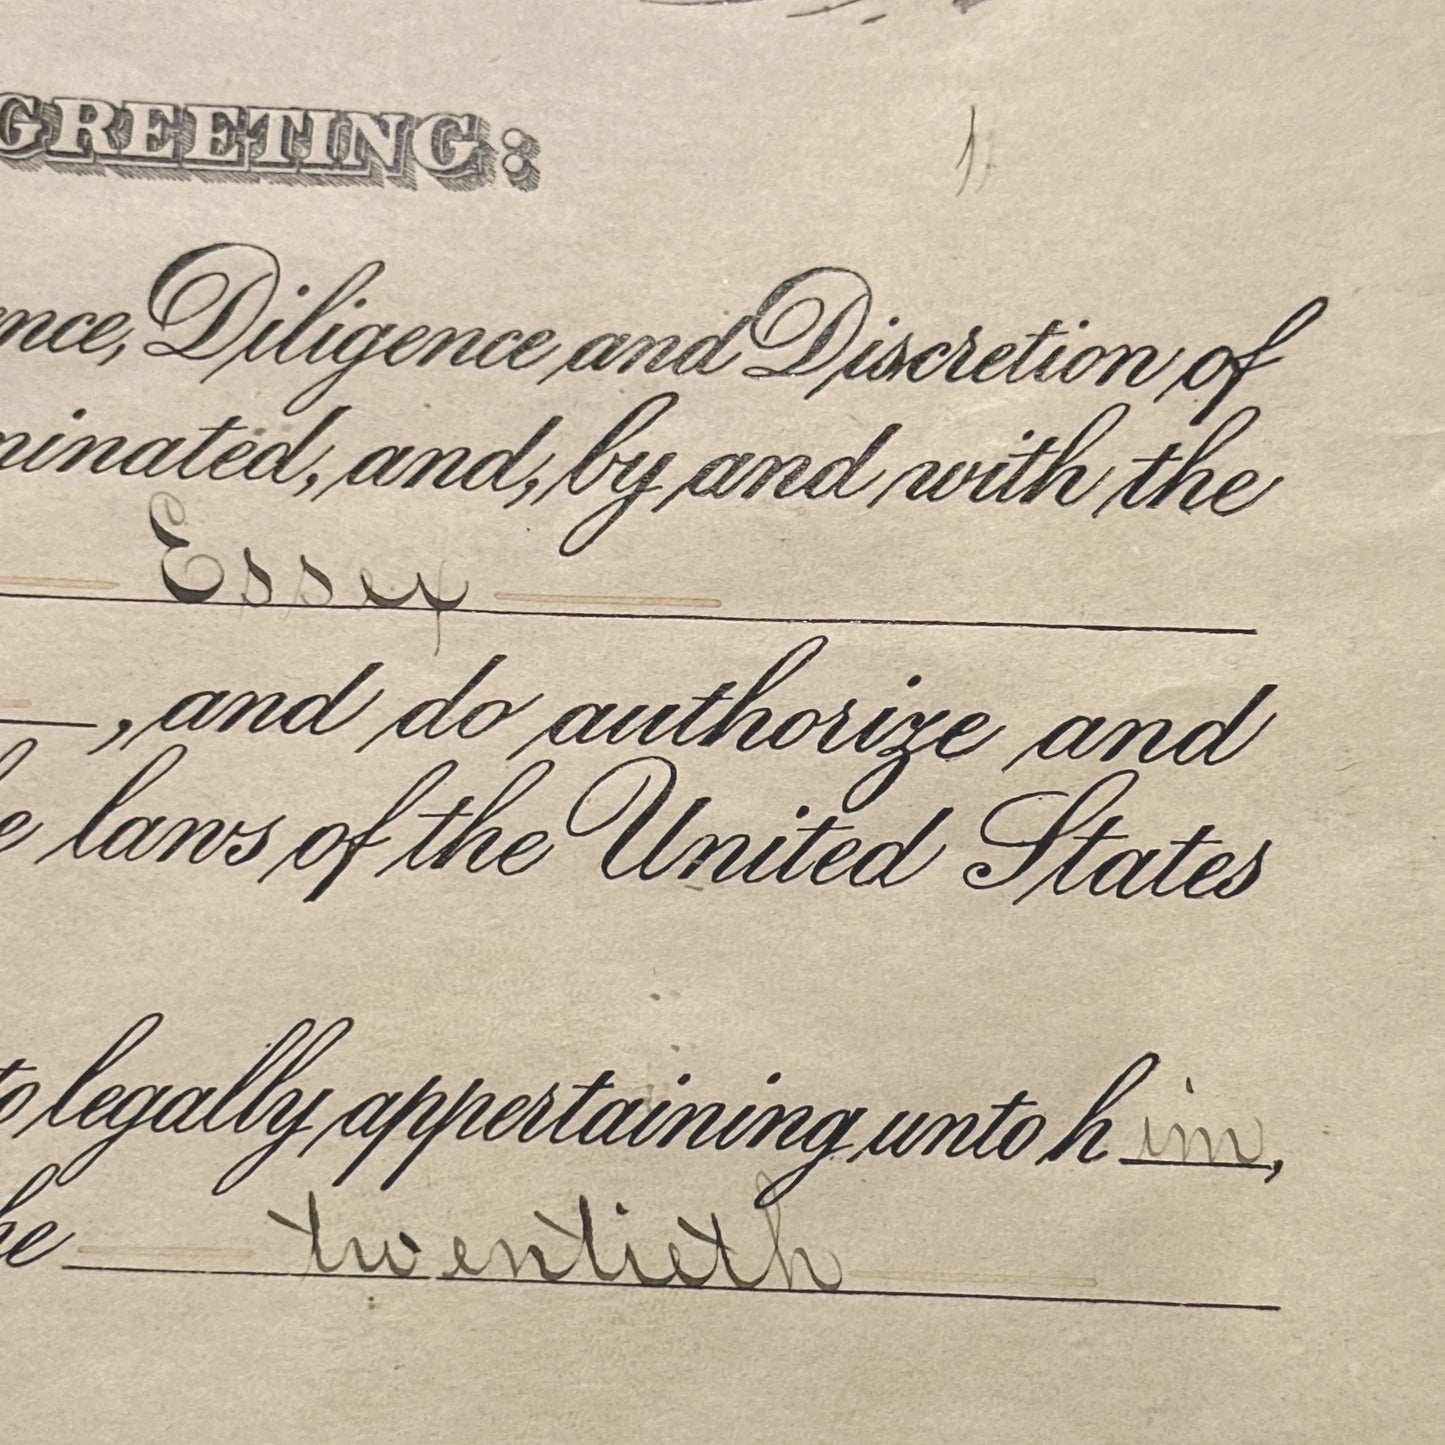 GREETING:
nce, Diligence and Discretion of
minated, and, by and with the
Essex
, and do authorize and
e laws of the United States
to legally appertaining unto him,
he twentieth